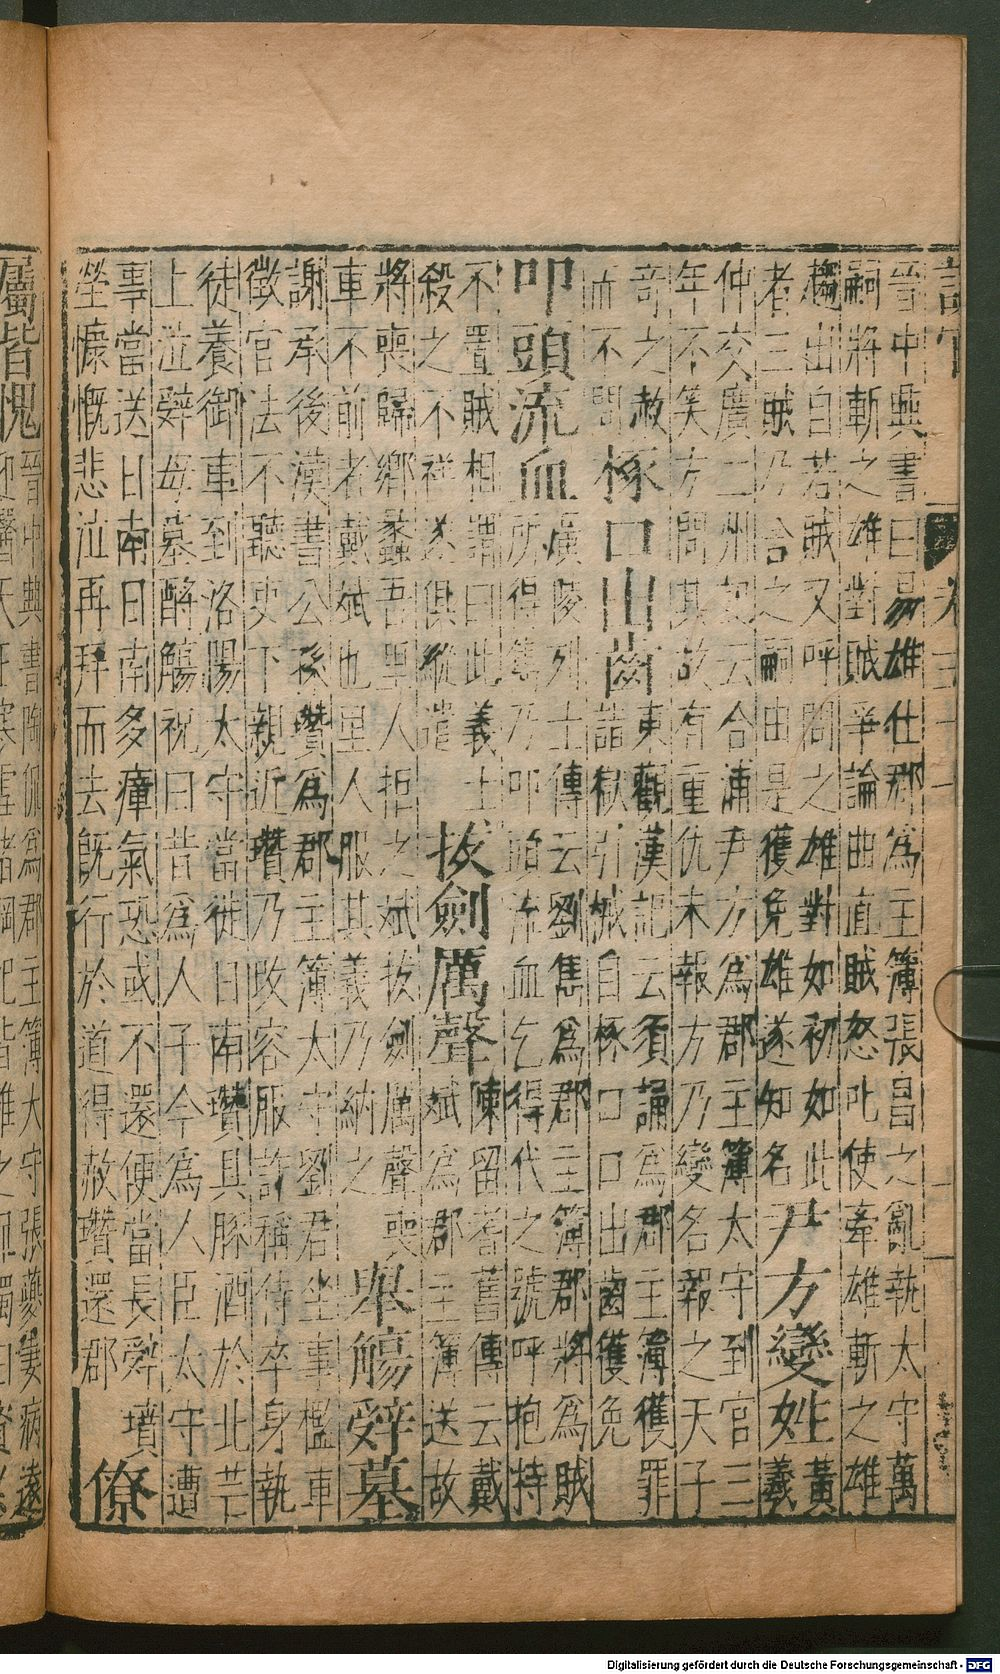 晉中興書曰易雄仕郡為主簿張昌之亂執太守萬
嗣將斬之雄對賊爭論曲直賊怒叱使牽雄斬之雄
趨出自若賊又呼問之雄對如初如此
者三賊乃舍之嗣由是獲免雄遂知名
尹方變姓
黃
義
仲交廣二州記云合浦尹方為郡主簿太守到官三
年不笑方問其故有重仇未報方乃變名報之天子
奇之赦
而不問
椓口出齒
東觀漢記云須誦為郡主簿獲罪
詣獄引械自椓口口出齒獲免
叩頭流血
廣陵列士傳云劉雋為郡主簿郡將為賊
所得雋乃叩頭流血乞得代之號呼抱持
不置賊相謂曰此義士
殺之不祥遂俱縱遣
拔劍厲聲
陳留耆舊傳云戴
斌為郡主簿送故
將喪歸鄉蠡吾里人拒之斌拔劍厲聲喪
車不前者戴斌也里人服其義乃納之
舉觴辭墓
謝承後漢書公孫瓚為郡主簿太守劉君坐事檻車
徵官法不聽吏下親近瓚乃改容服詐稱侍卒身執
徒養御車到洛陽太守當徙日南瓚具豚酒於北芒
上泣辭母墓酹觴祝曰昔為人子今為人臣太守遭
事當送日南日南多瘴氣恐或不還便當長辭墳
塋慷慨悲泣再拜而去既行於道得赦瓚還郡
僚
屬皆愧
晉中興書陶侃為郡主簿大守張夔妻病遠
Digitalisierung gefördert durch die Deutsche Forschungsgemeinschaft - DFG